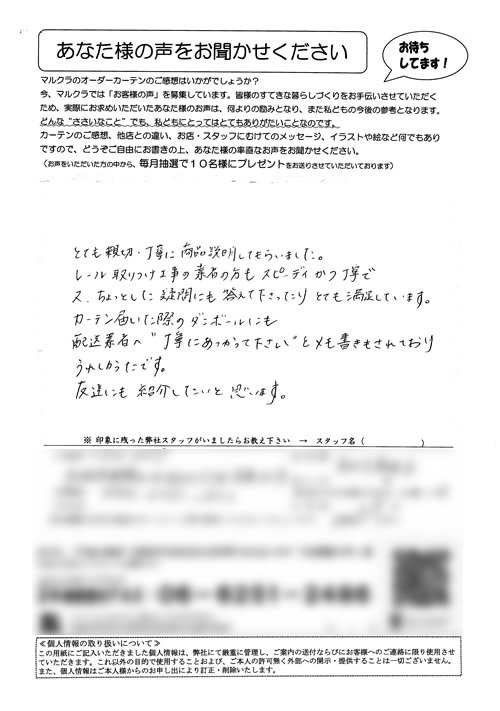 あなた様の声をお聞かせください
お待ち
してます！
マルクラのオーダーカーテンのご感想はいかがでしょうか？
今、マルクラでは「お客様の声」を募集しています。皆様のすてきな暮らしづくりをお手伝いさせていただく
ため、実際にお求めいただいたあなた様のお声は、何よりの励みとなり、また私どもの今後の参考となります。
どんな“ささいなこと”でも、私どもにとってはとてもありがたいことなのです。
カーテンのご感想、他店との違い、お店・スタッフにむけてのメッセージ、イラストや絵など何でもあり
ですので、どうぞご自由にお書きの上、あなた様の率直なお声をお聞かせください。
（お声をいただいた方の中から、毎月抽選で１０名様にプレゼントをお送りさせていただいております）
とても親切・丁寧に商品説明してもらいました。
レール取りつけ工事の業者の方もスピーディかつ丁寧で
又、ちょっとした疑問にも答えて下さったりとても満足しています。
カーテン届いた際のダンボールにも
配送業者へ“丁寧にあつかって下さい”とメモ書きもされており
うれしかったです。
友達にも紹介したいと思います。
※ 印象に残った弊社スタッフがいましたらお教え下さい → スタッフ名（　　　　　）
≪個人情報の取り扱いについて≫
この用紙にご記入いただきました個人情報は、弊社にて厳重に管理し、ご案内の送付ならびにお客様へのご連絡に限り使用させ
ていただきます。これ以外の目的で使用することおよび、ご本人の許可無く外部への開示・提供することは一切ございません。
また、個人情報はご本人様からのお申し出により訂正・削除いたします。